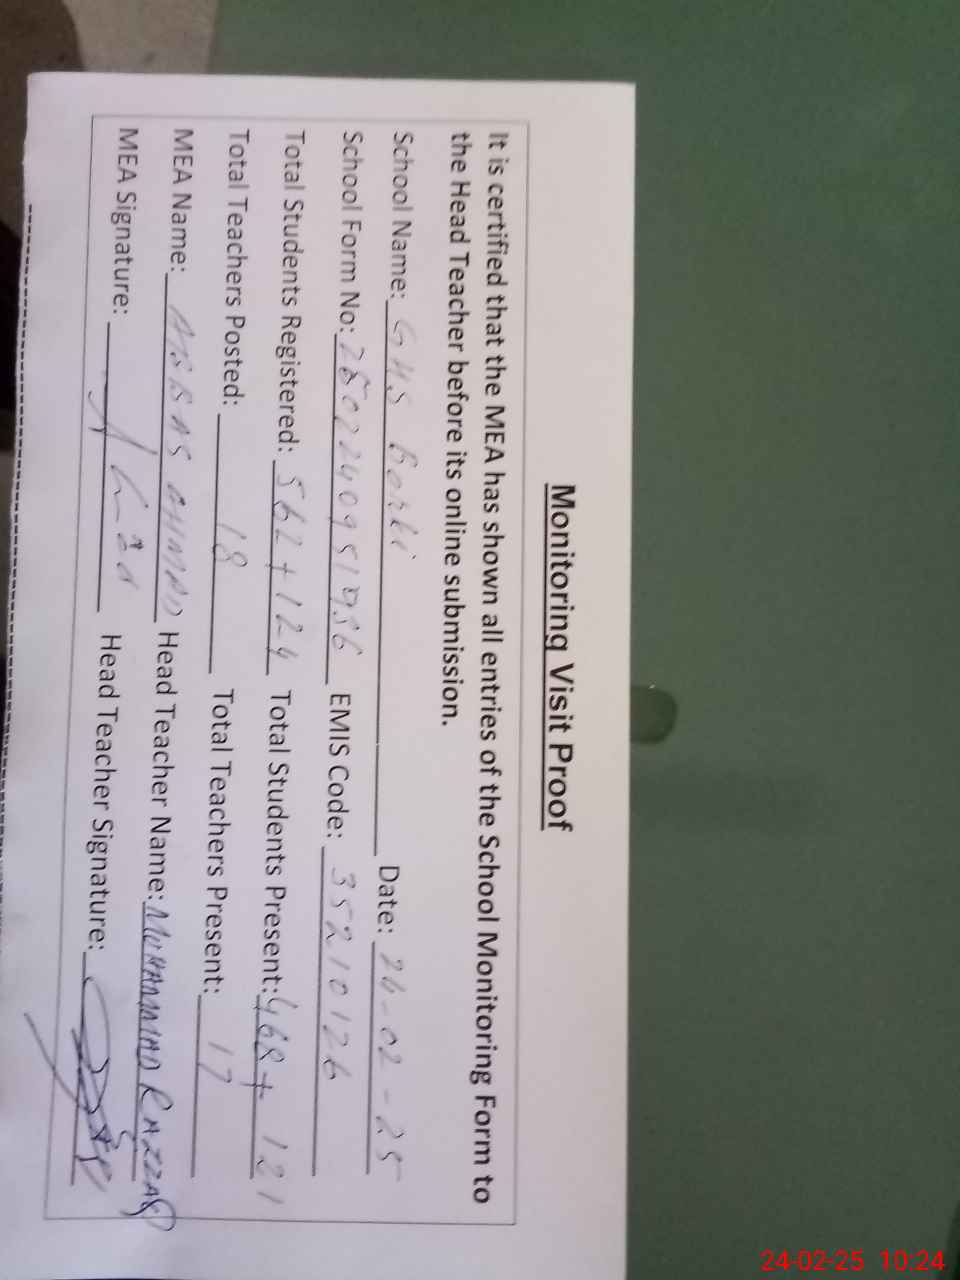 Monitoring Visit Proof
It is certified that the MEA has shown all entries of the School Monitoring Form to
the Head Teacher before its online submission.
School Name: GHS Borki Date: 24-02-25
School Form No: EMIS Code: 35210126
Total Students Registered: 562 + 124 Total Students Present: 468 + 121
Total Teachers Posted: 18 Total Teachers Present: 17
MEA Name: ABBAS AHMAD Head Teacher Name: MUHAMMAD RAZZAQ
MEA Signature: Head Teacher Signature:
24-02-25 10:24